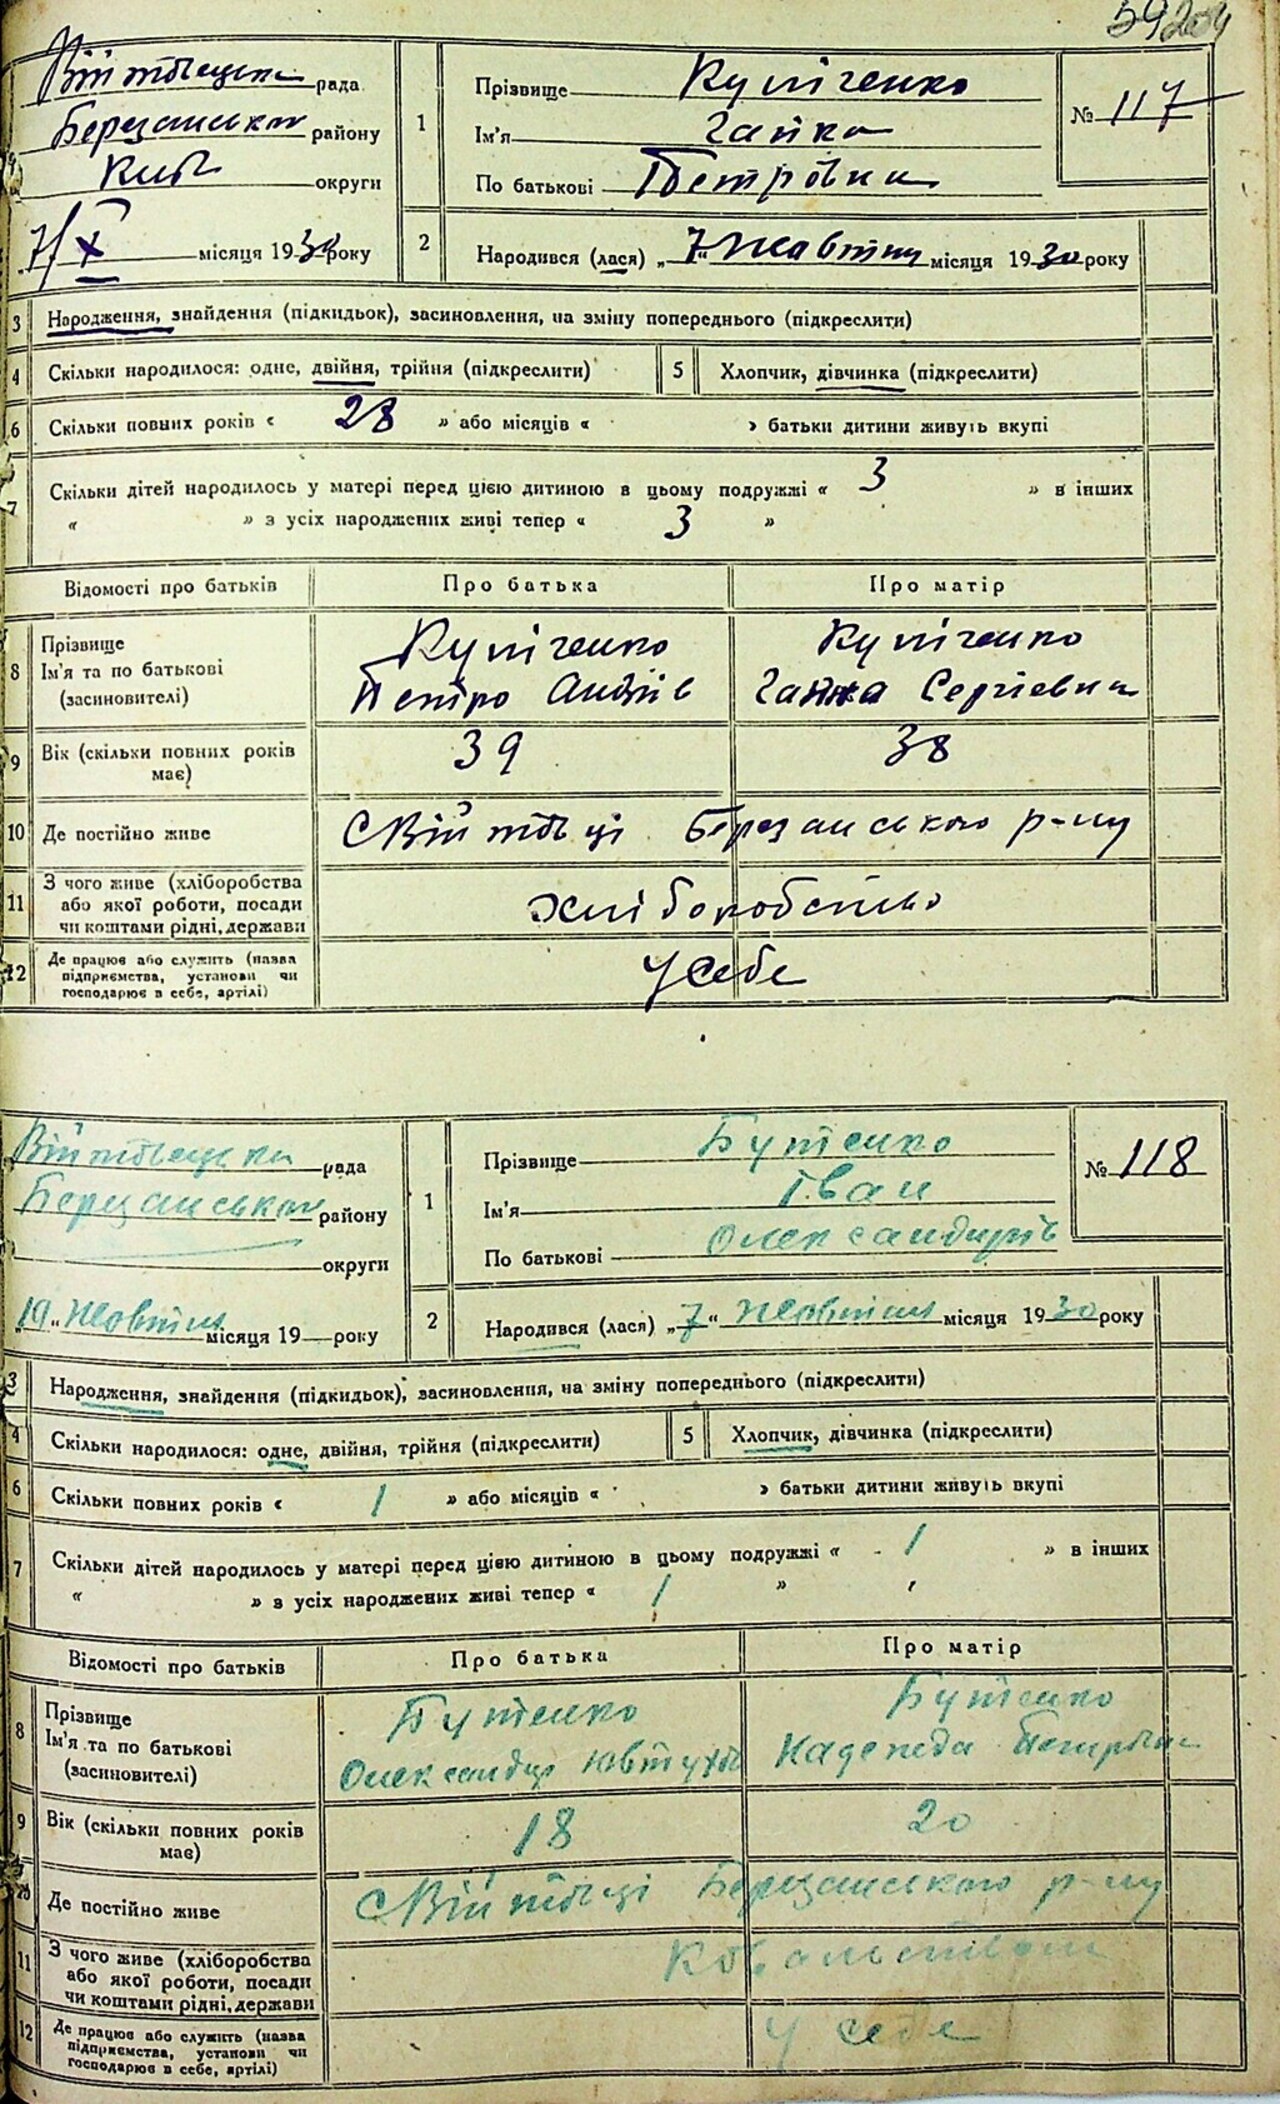 59 204
Війтовецька рада
Березанського району
Київ округи
7/X місяця 1930 року
1
Прізвище Куліченко
Ім'я Ганна
По батькові Петровна
№ 117
2
Народився (лася) „7“ Жовтня місяця 1930 року
3 Народження, знайдення (підкидьок), засиновлення, на зміну попереднього (підкреслити)
4 Скільки народилося: одне, двійня, трійня (підкреслити) 5 Хлопчик, дівчинка (підкреслити)
6 Скільки повних років « 28 » або місяців « » батьки дитини живуть вкупі
7 Скільки дітей народилось у матері перед цією дитиною в цьому подружжі « 3 » в інших
« » з усіх народжених живі тепер « 3 »
Відомості про батьків Про батька Про матір
8 Прізвище Куліченко Куліченко
Ім'я та по батькові Петро Андрів Ганна Сергієвна
(засиновителі)
9 Вік (скільки повних років 39 38
має)
10 Де постійно живе С Війтовці Березанського р-ну
11 З чого живе (хліборобства
або якої роботи, посади Хліборобство
чи коштами рідні, держави
12 Де працює або служить (назва
підприємства, установи чи у себе
господарює в себе, артілі)
Війтовецька рада
Березанського району
округи
„19“ Жовтня місяця 19 року
1
Прізвище Бутенко
Ім'я Іван
По батькові Олександрів
№ 118
2
Народився (лася) „7“ Жовтня місяця 1930 року
3 Народження, знайдення (підкидьок), засиновлення, на зміну попереднього (підкреслити)
4 Скільки народилося: одне, двійня, трійня (підкреслити) 5 Хлопчик, дівчинка (підкреслити)
6 Скільки повних років « 1 » або місяців « » батьки дитини живуть вкупі
7 Скільки дітей народилось у матері перед цією дитиною в цьому подружжі « 1 » в інших
« » з усіх народжених живі тепер « 1 »
Відомості про батьків Про батька Про матір
8 Прізвище Бутенко Бутенко
Ім'я та по батькові Олександр Ювтухів Надежда Петровна
(засиновителі)
9 Вік (скільки повних років 18 20
має)
10 Де постійно живе С Війтовці Березанського р-ну
11 З чого живе (хліборобства
або якої роботи, посади Ковальством
чи коштами рідні, держави
12 Де працює або служить (назва
підприємства, установи чи у себе
господарює в себе, артілі)